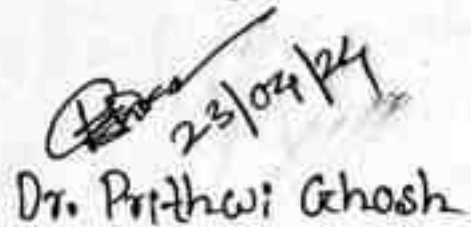 23/04/24
Dr. Prithwi Ghosh